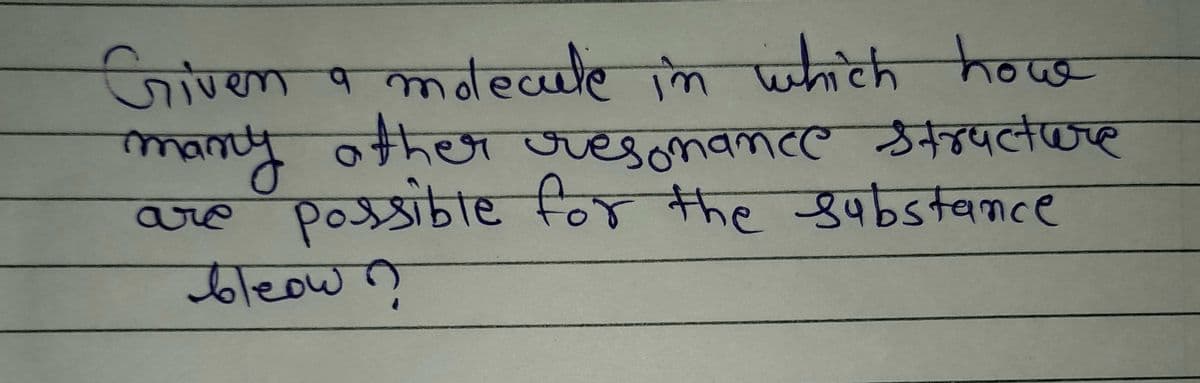 Given a molecule in which how
many other resonance structure
are possible for the substance
bleow ?